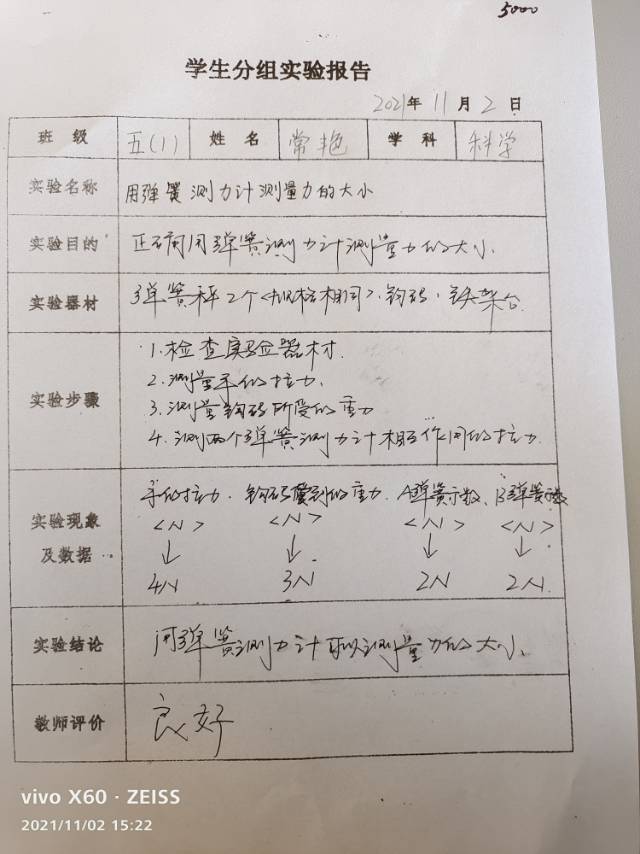 5000
学生分组实验报告
2021年 11月 2日
班级 五(1) 姓名 常艳 学科 科学
实验名称 用弹簧测力计测量力的大小
实验目的 正确用弹簧测力计测量力的大小.
实验器材 弹簧秤2个<规格相同>.钩码.铁架台.
实验步骤
1.检查实验器材.
2.测量手的拉力.
3.测量钩码所受的重力
4.测两个弹簧测力计相互作用的拉力.
实验现象及数据
手的拉力. 钩码受到的重力. A弹簧示数. B弹簧示数
<N> <N> <N> <N>
↓ ↓ ↓ ↓
4N 3N 2N 2N.
实验结论 用弹簧测力计可以测量力的大小.
教师评价 良好
vivo X60 · ZEISS
2021/11/02 15:22